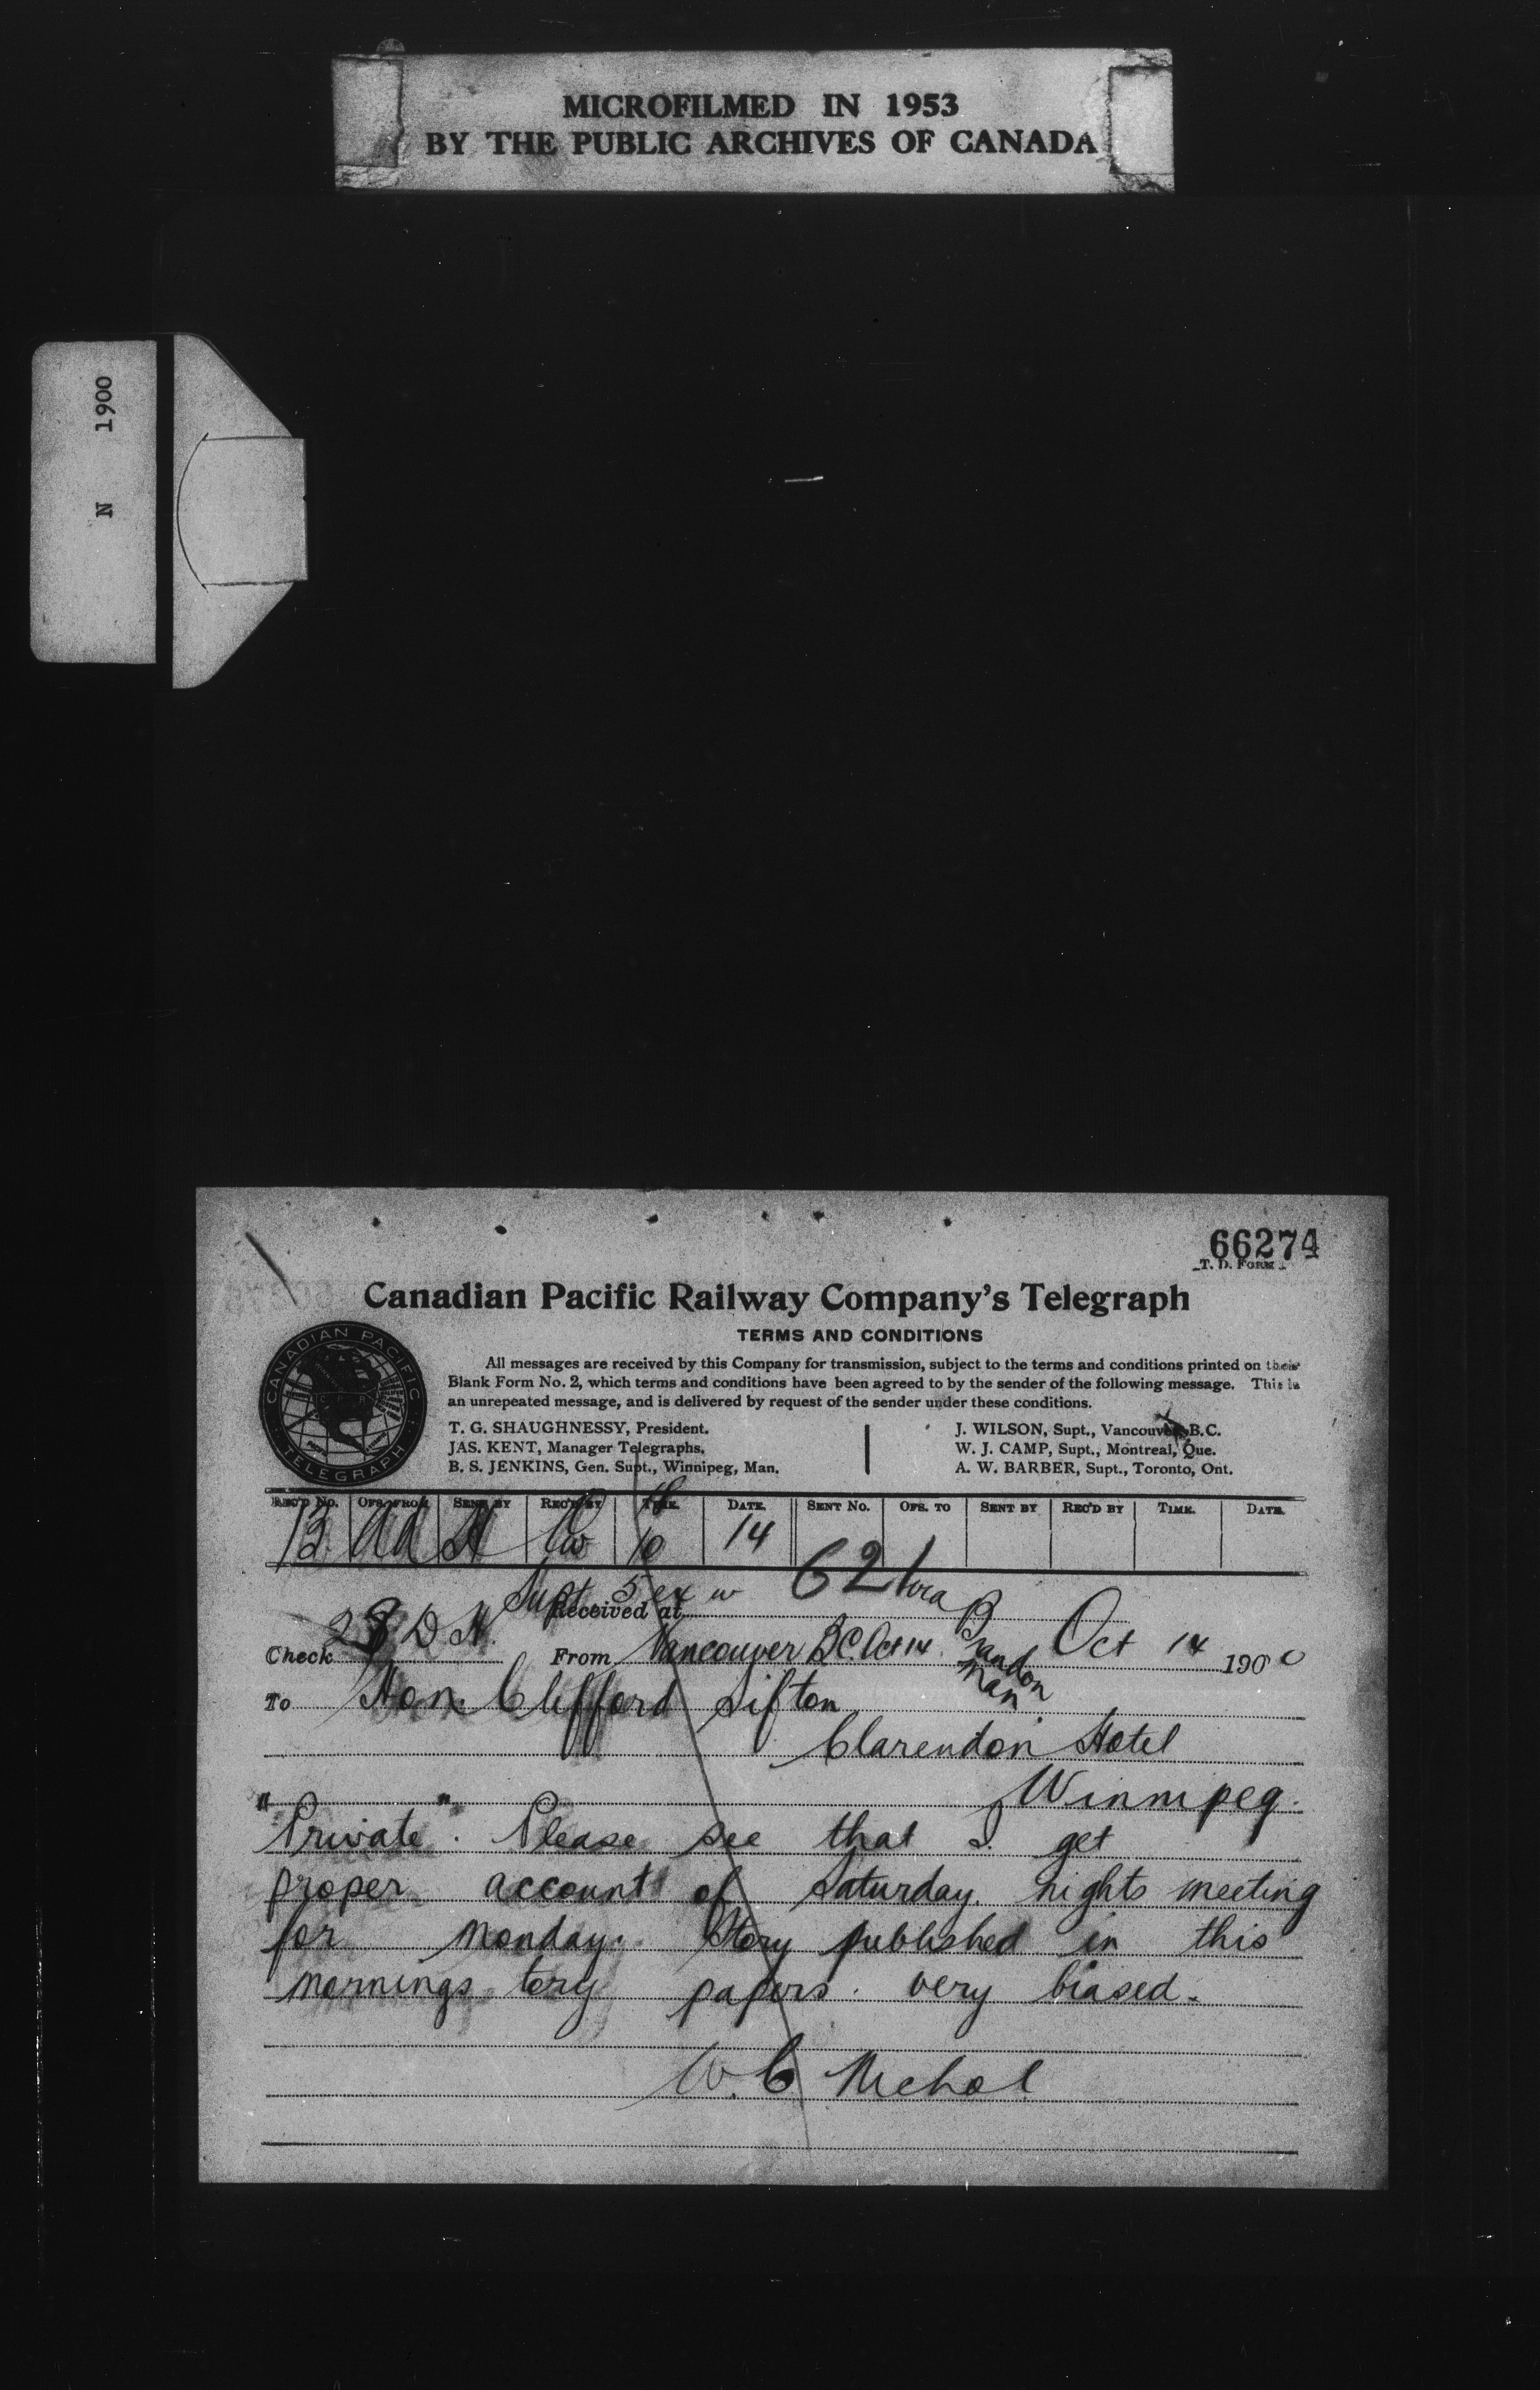 MICROFILMED IN 1953
BY THE PUBLIC ARCHIVES OF CANADA
N 1900
66274
T. D. FORM 1
Canadian Pacific Railway Company's Telegraph
TERMS AND CONDITIONS
All messages are received by this Company for transmission, subject to the terms and conditions printed on their
Blank Form No. 2, which terms and conditions have been agreed to by the sender of the following message. This is
an unrepeated message, and is delivered by request of the sender under these conditions.
T. G. SHAUGHNESSY, President.
JAS. KENT, Manager Telegraphs.
B. S. JENKINS, Gen. Supt., Winnipeg, Man.
J. WILSON, Supt., Vancouver, B.C.
W. J. CAMP, Supt., Montreal, Que.
A. W. BARBER, Supt., Toronto, Ont.
CANADIAN PACIFIC TELEGRAPH
REC'D No. OFS. FROM SENT BY REC'D BY TIME. DATE. SENT No. OFS. TO SENT BY REC'D BY TIME. DATE.
13 10 14
Supt. 5 ex w 621 via Brandon Man
Received at
Check 28 D H. From Vancouver B.C. Oct 14 Oct 14 1900
To Hon. Clifford Sifton
Clarendon Hotel
Winnipeg.
"Private". Please see that I get
proper account of Saturday nights meeting
for Monday. Story published in this
mornings tory papers very biased.
W. C Nichol